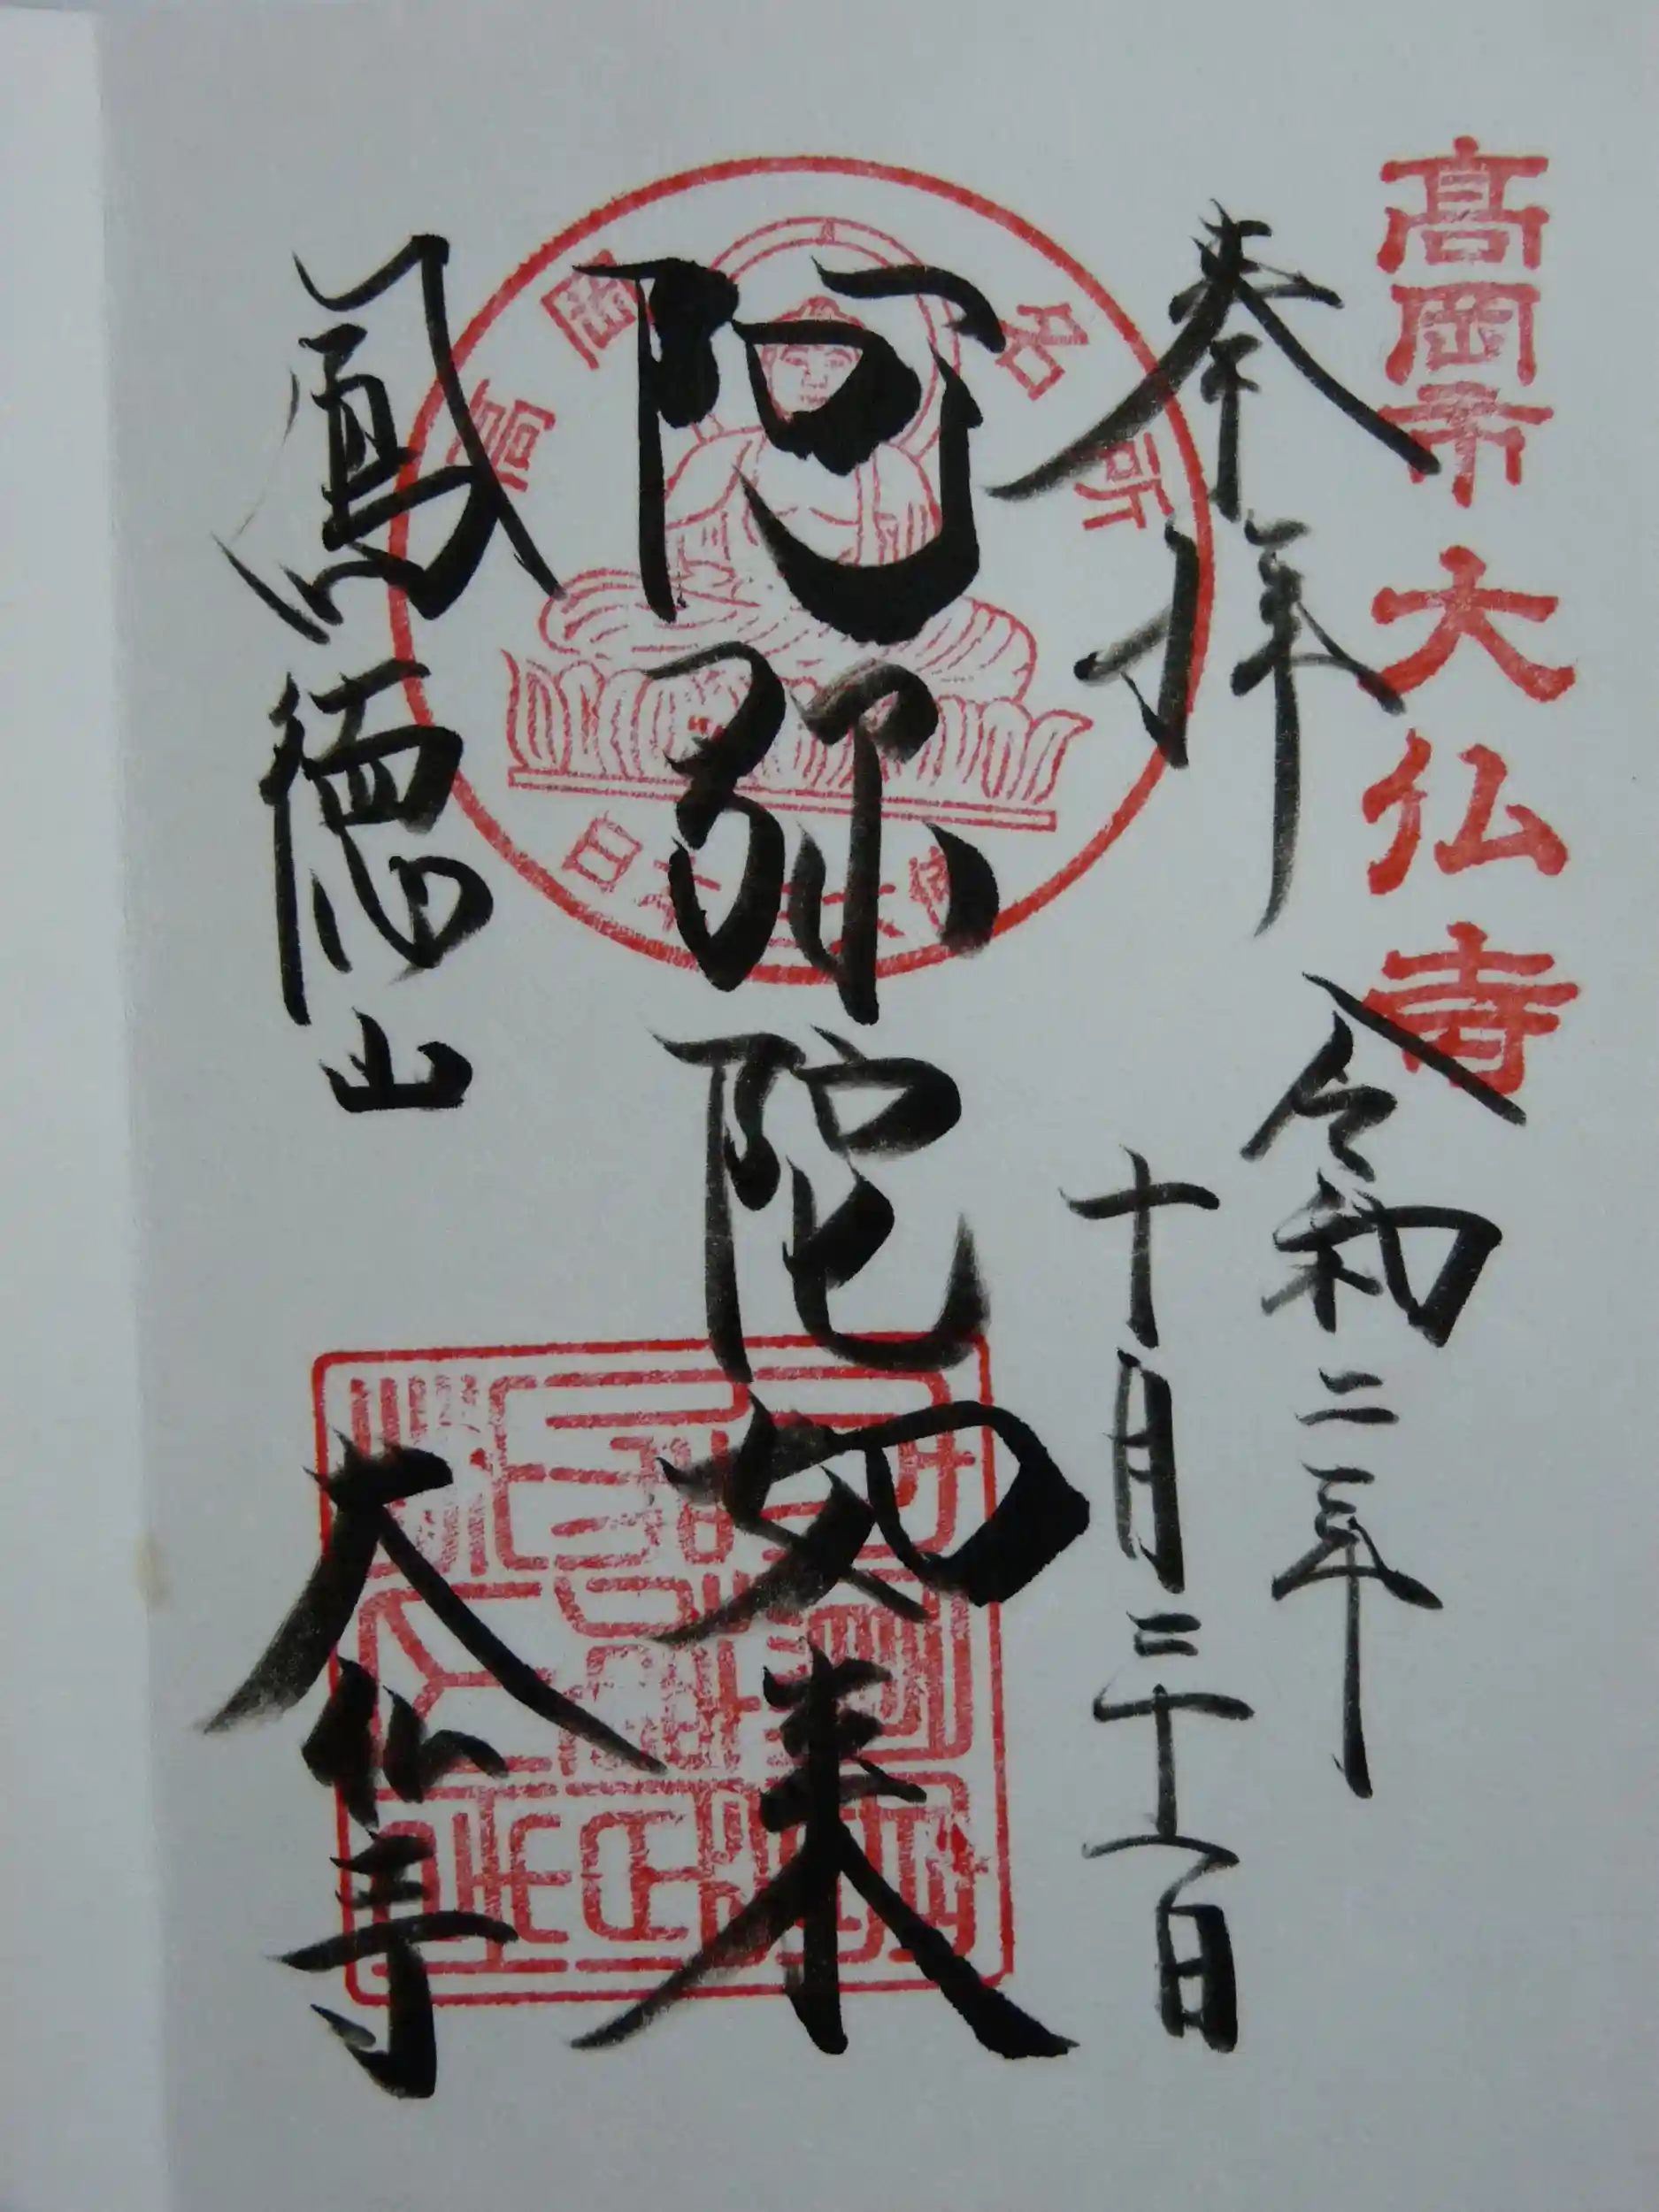 高岡市大仏寺
奉拝
令和二年
十月三十一日
阿弥陀如来
鳳徳山
大仏寺
日本三大佛